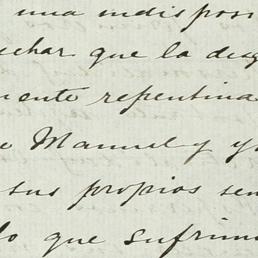 una indispos
echar que la desg
mente repentina
e Manuel y y
sus propios sen
lo que sufrim